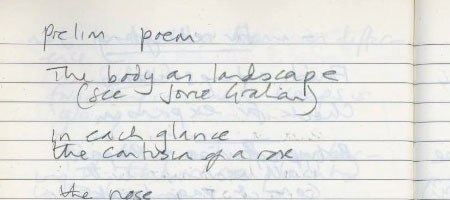 Prelim poem
The body as landscape
(see Jorie Graham)
in each glance
the contusion of a rose
the nose